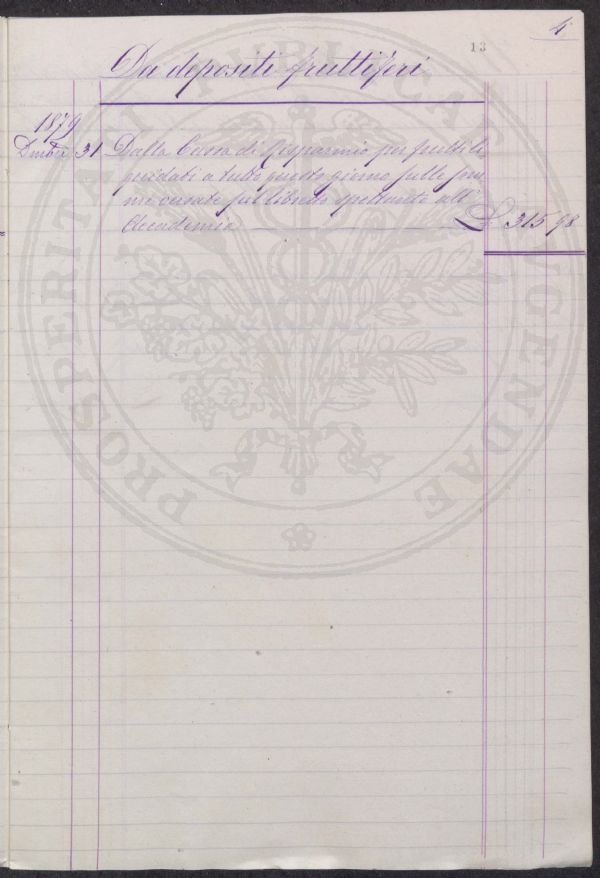 4
13
Da depositi fruttiferi
1879
Dicbre 31 Dalla Cassa di Risparmio per frutti li
quidati a tutto questo giorno sulle som
me versate sul libretto spettante all'
Accademia L 315 98
PROSPERITATI PUBLICAE AUGENDAE